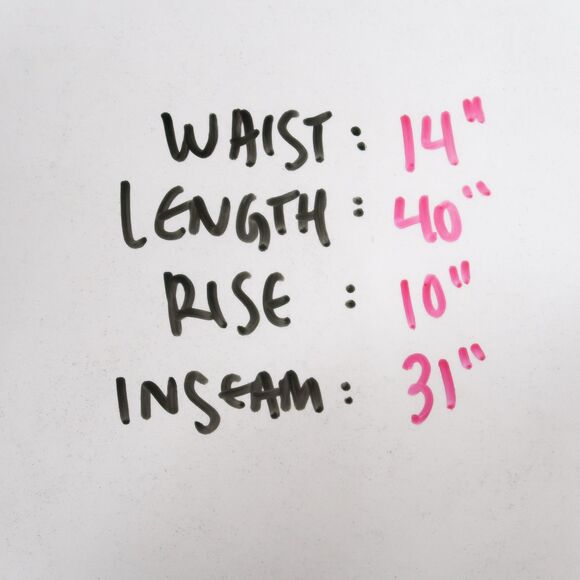 WAIST: 14"
LENGTH: 40"
RISE : 10"
INSEAM: 31"